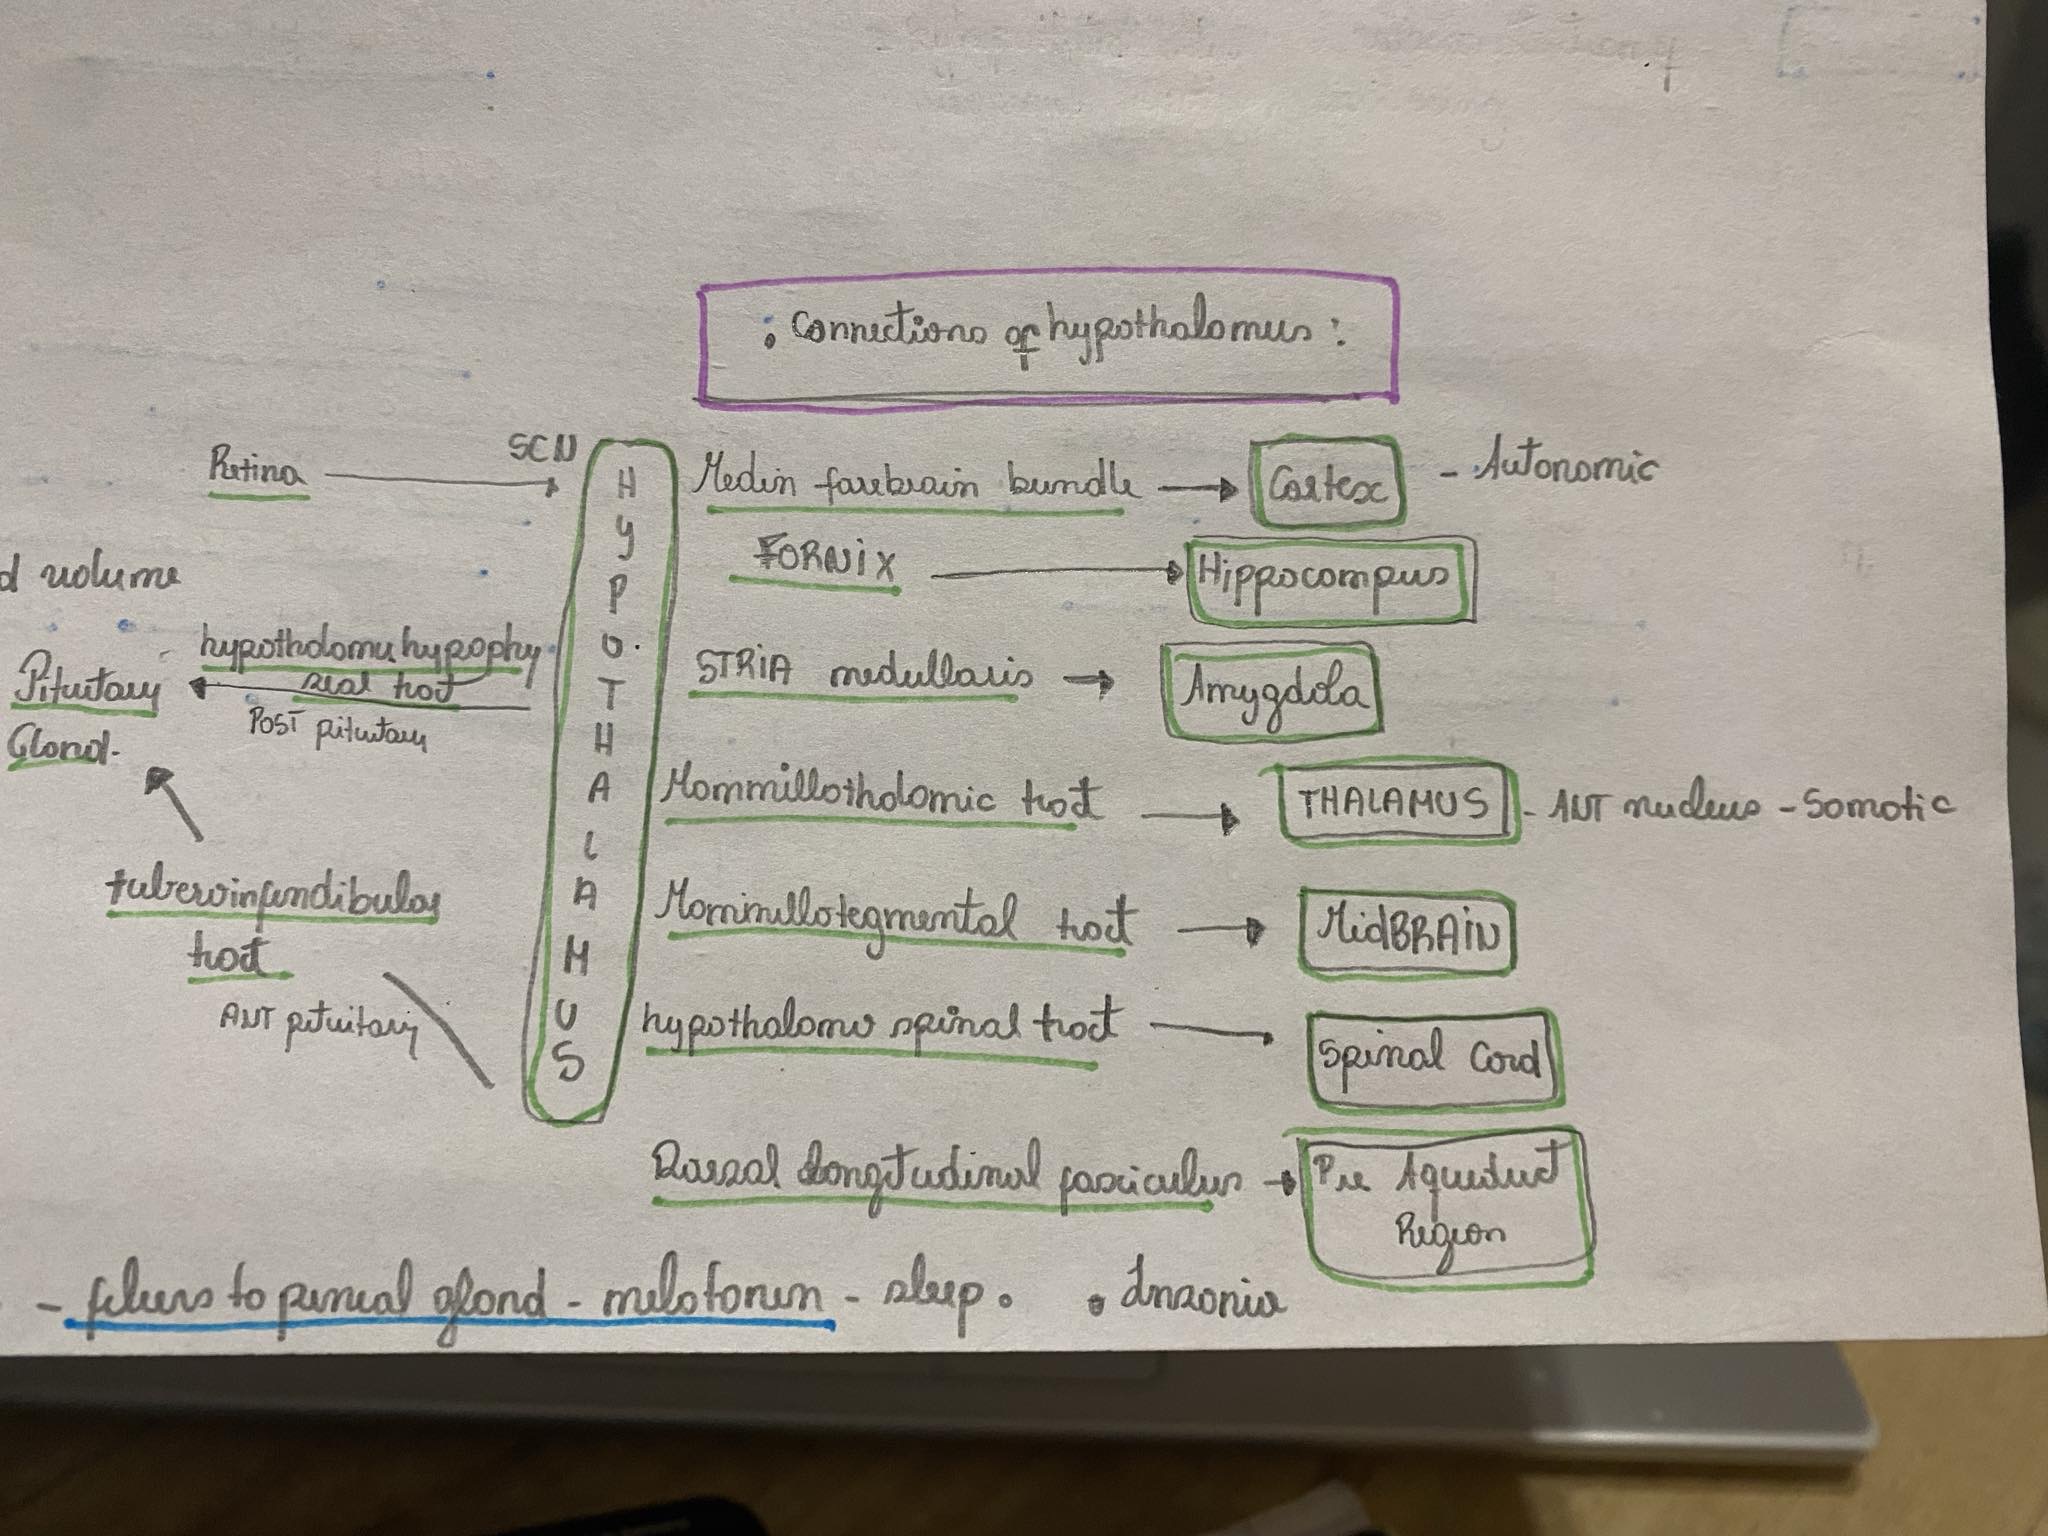 : Connections of hypothalamus :
Retina
SCN
HYPOTHALAMUS
Medin forebrain bundle
Cortex
- Autonomic
FORNiX
Hippocampus
d volume
hypothalamu hypophy
seal tract
POST pituitary
Pituitary
Gland.
STRiA medullaris
Amygdala
Mammillothalamic tract
THALAMUS
- ANT nucleus - Somatic
tuberoinfundibular
tract
ANT pituitary
Mammillotegmental tract
MidBRAiN
hypothalamo spinal tract
Spinal Cord
Dorsal longitudinal fasciculus
Pre Aqueduct
Region
- fibers to pineal gland - melatonin - sleep.
. Insonia